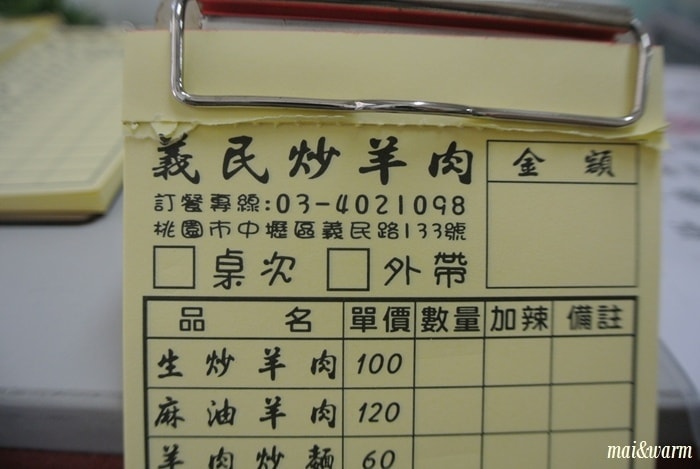 義民炒羊肉
金額
訂餐專線:03-4021098
桃園市中壢區義民路133號
桌次 外帶
品名 單價 數量 加辣 備註
生炒羊肉 100
麻油羊肉 120
羊肉炒麵 60
mai&warm